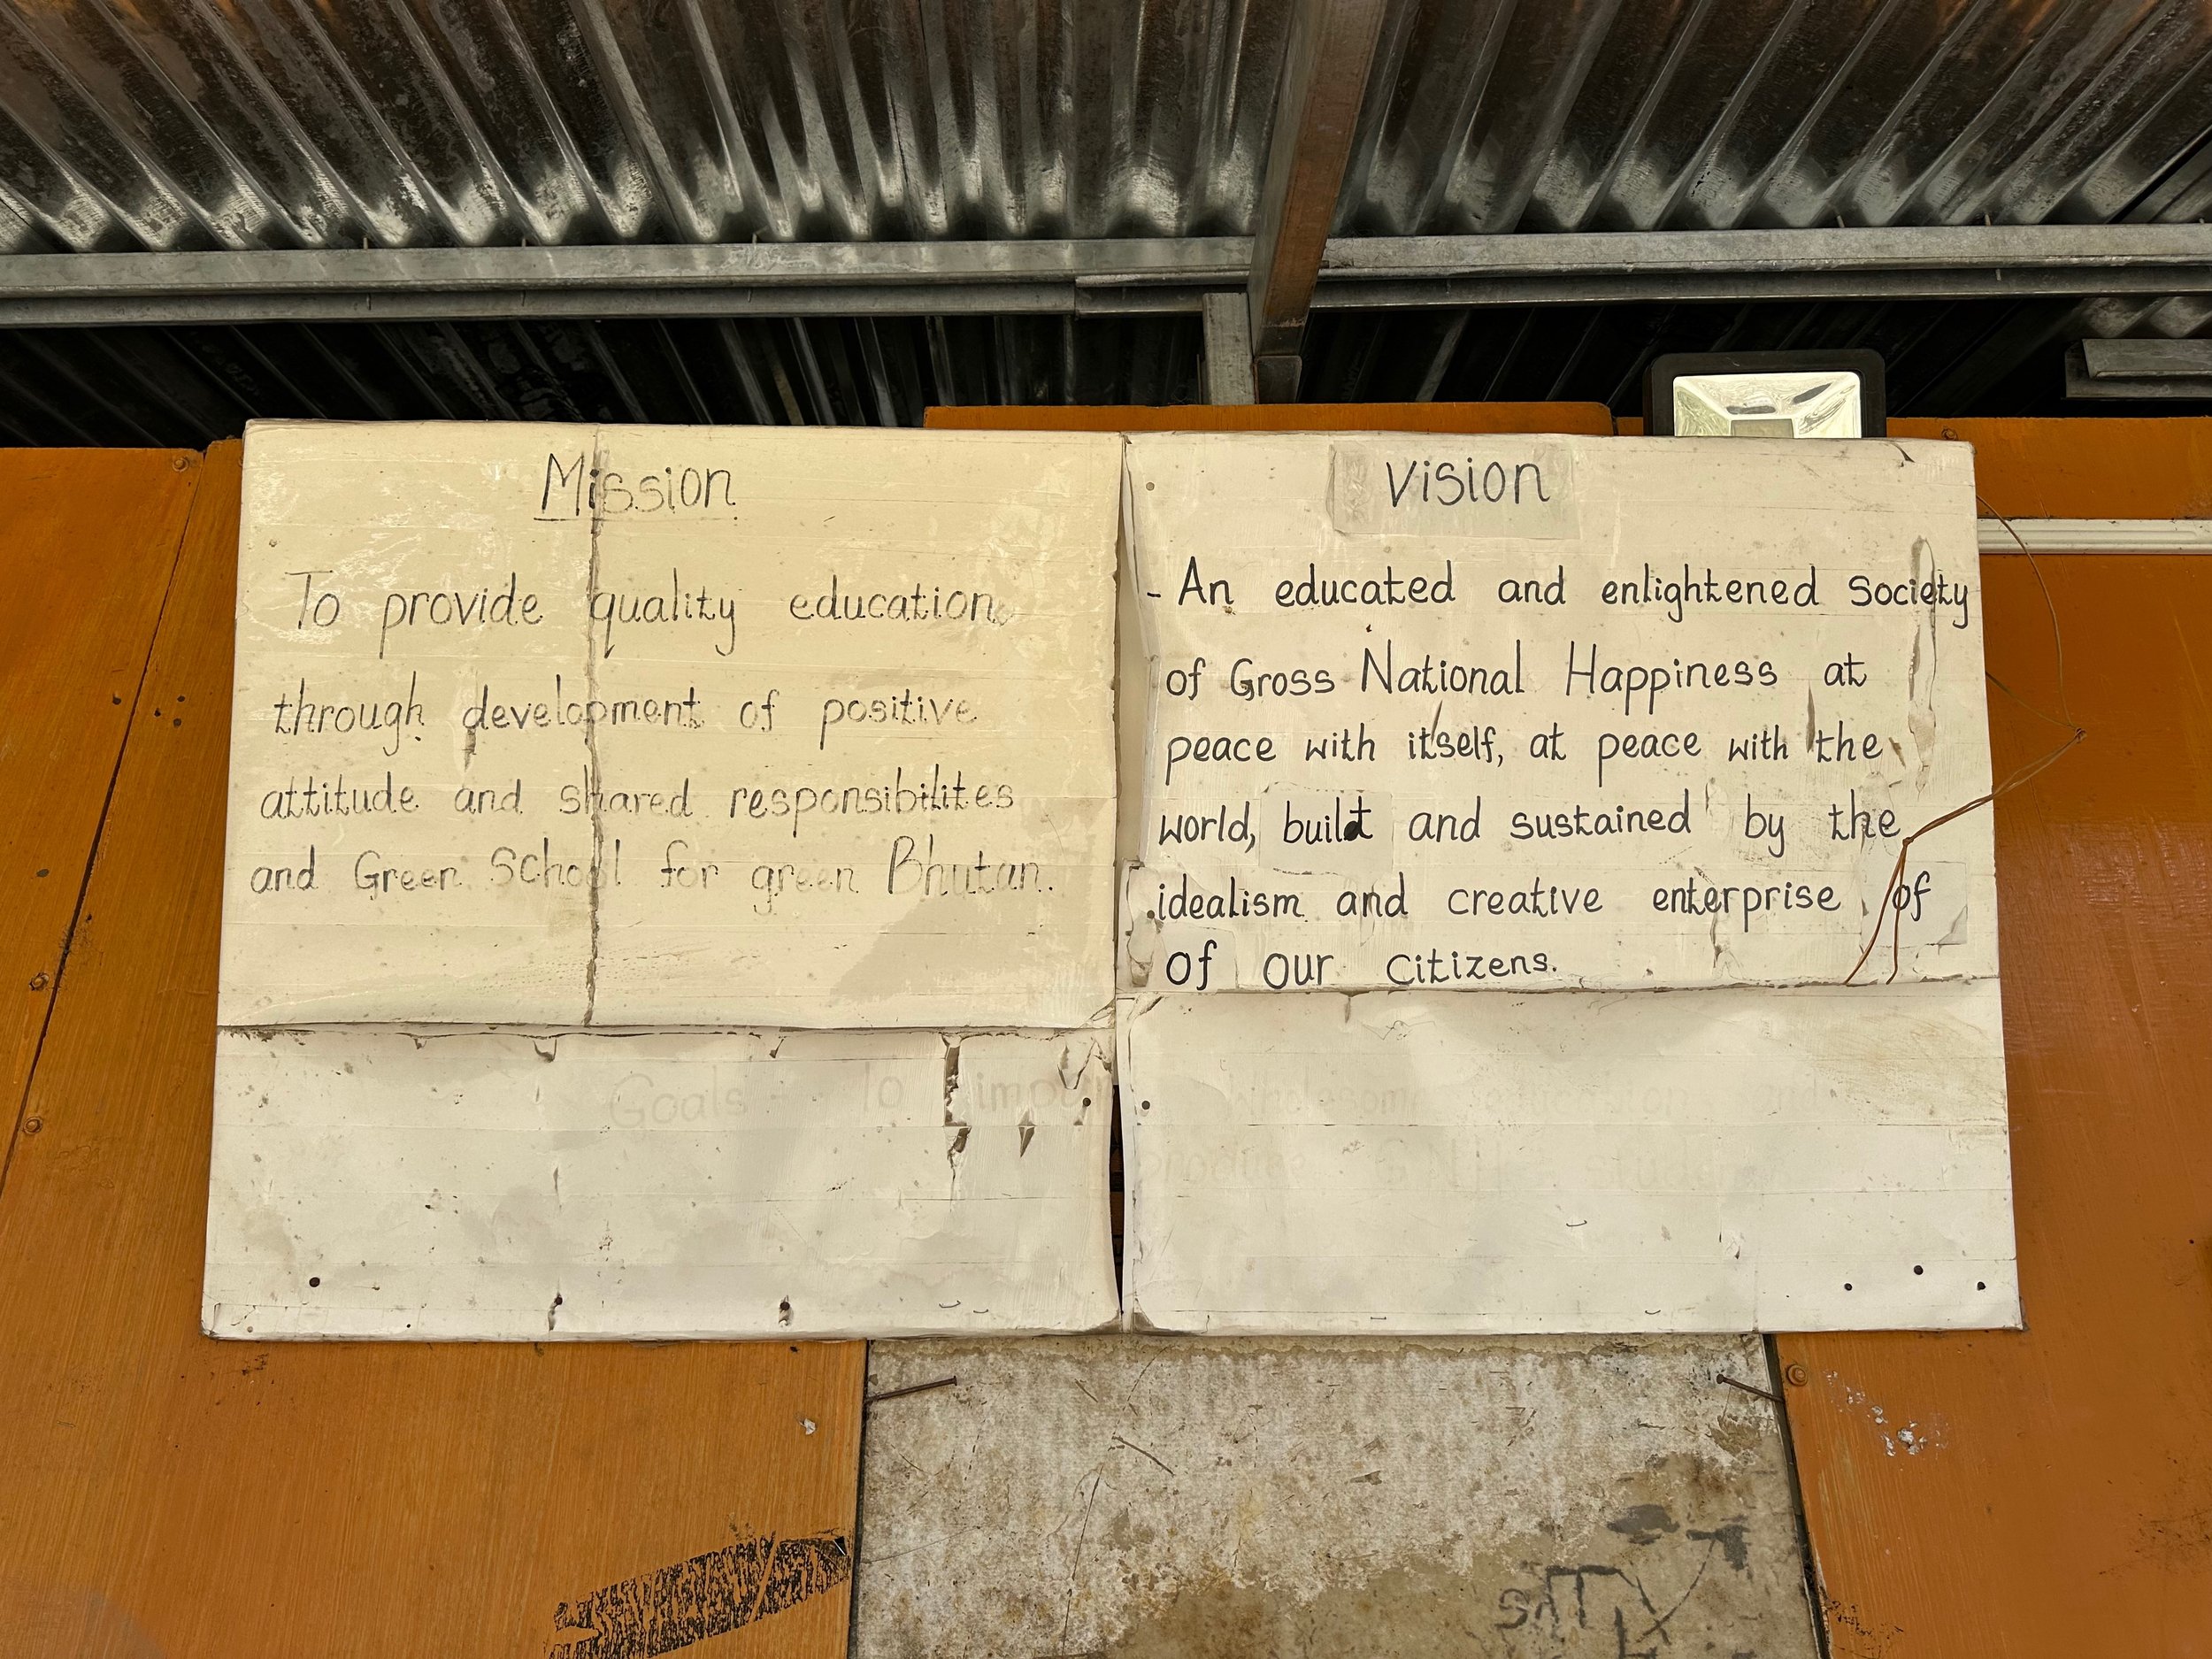 Mission
To provide quality education
through development of positive
attitude and shared responsibilites
and Green School for green Bhutan.
Vision
- An educated and enlightened society
of Gross National Happiness at
peace with itself, at peace with the
world, built and sustained by the
idealism and creative enterprise of
of our citizens.
Goals - To
education and
produce GNH